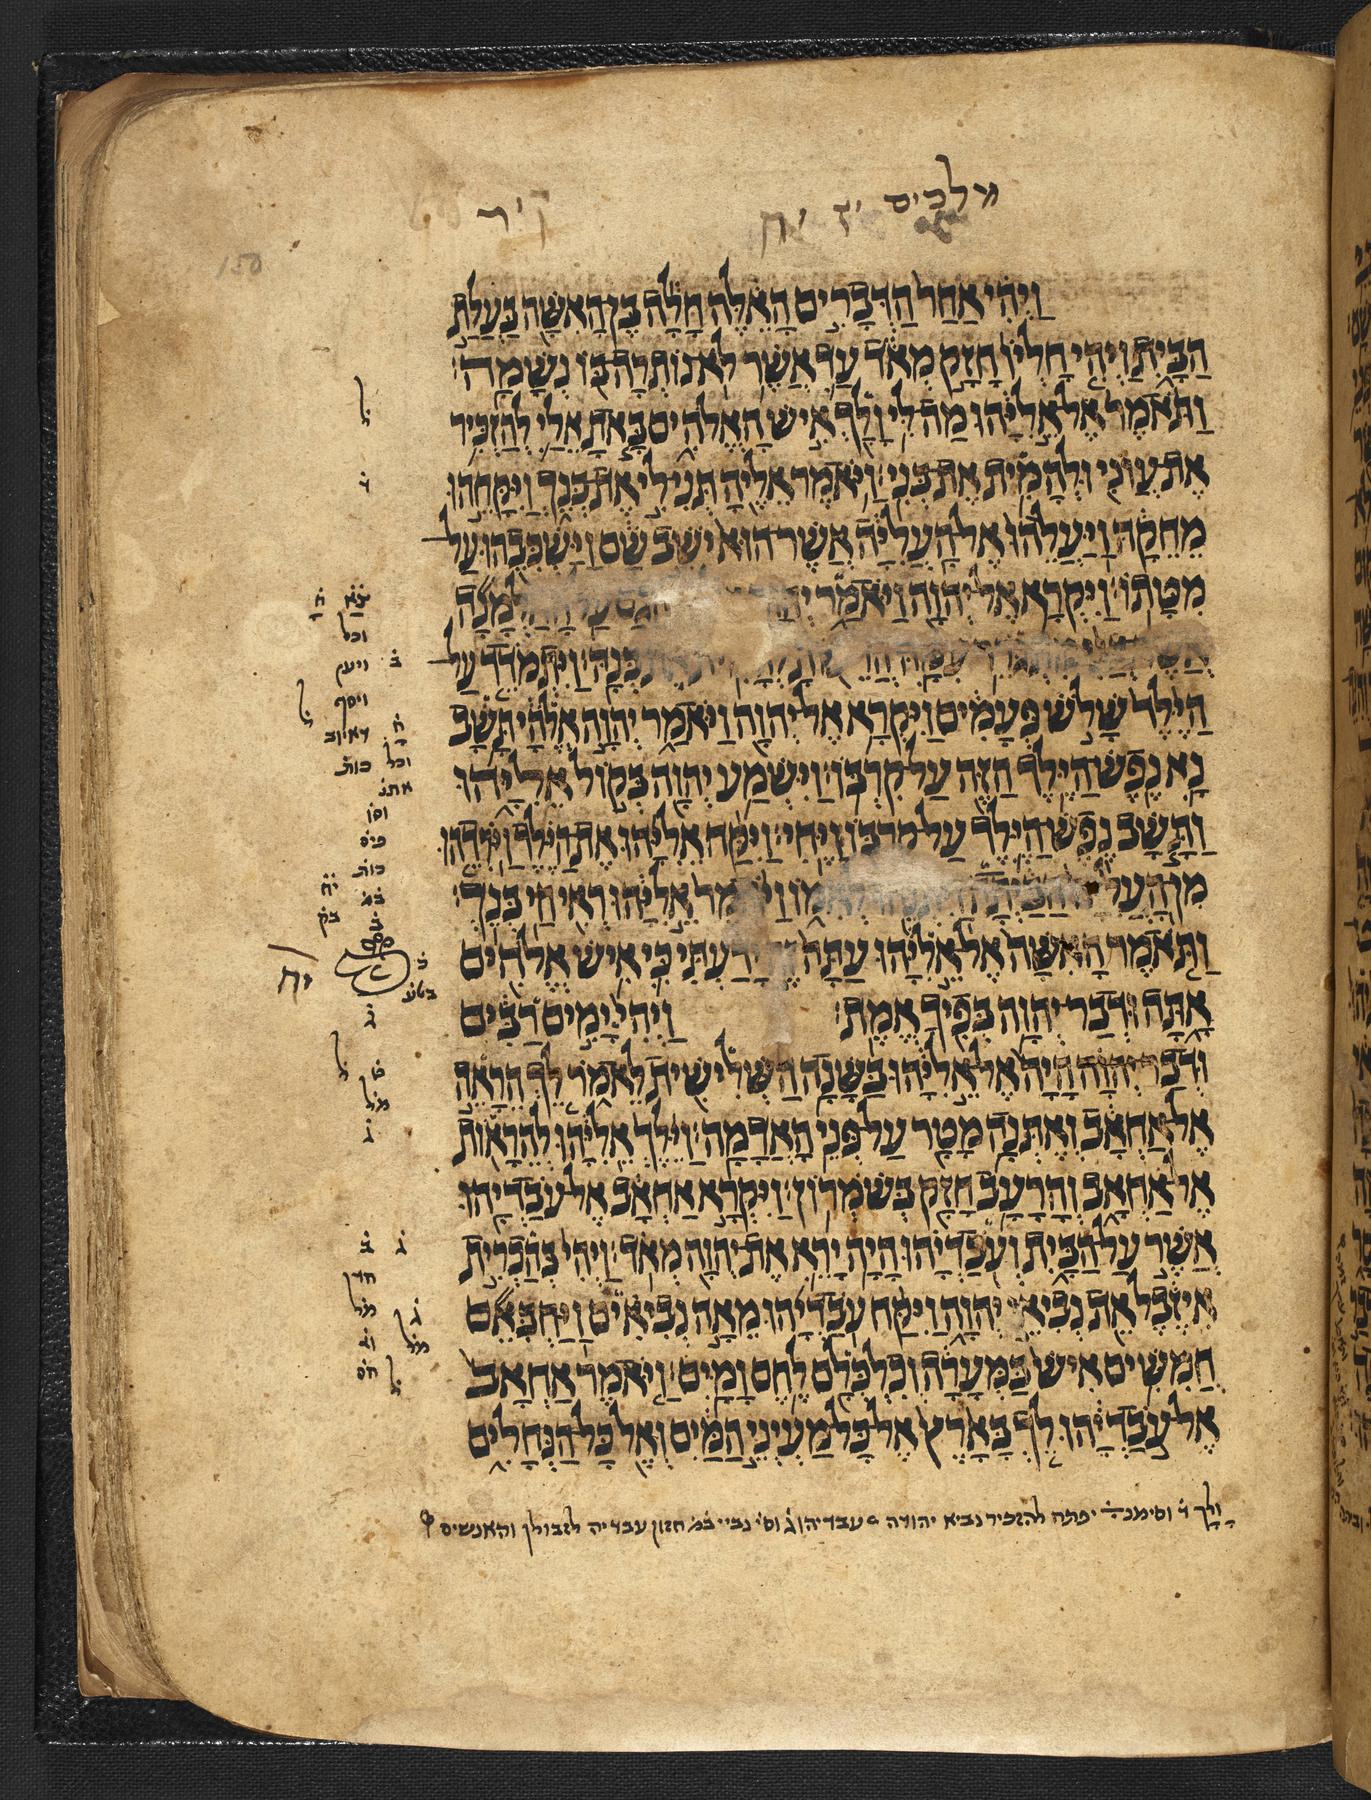 מלכים יז יח
ק'ר
150
וַיְהִי אַחַר הַדְּבָרִים הָאֵלֶּה חָלָה בֶּן הָאִשָּׁה בַּעֲלַת
הַבָּיִת וַיְהִי חָלְיוֹ חָזָק מְאֹד עַד אֲשֶׁר לֹא נוֹתְרָה בּוֹ נְשָׁמָה׃
וַתֹּאמֶר אֶל אֵלִיָּהוּ מַה לִּי וָלָךְ אִישׁ הָאֱלֹהִים בָּאתָ אֵלַי לְהַזְכִּיר
אֶת עֲוֹנִי וּלְהָמִית אֶת בְּנִי׃ וַיֹּאמֶר אֵלֶיהָ תְּנִי לִי אֶת בְּנֵךְ וַיִּקָּחֵהוּ
מֵחֵקָהּ וַיַּעֲלֵהוּ אֶל הָעֲלִיָּה אֲשֶׁר הוּא יֹשֵׁב שָׁם וַיַּשְׁכִּבֵהוּ עַל
מִטָּתוֹ׃ וַיִּקְרָא אֶל יְהוָה וַיֹּאמַר הֲגַם עַל הָאַלְמָנָה
עִמָּהּ בְּנָהּ׃ וַיִּתְמֹדֵד עַל
הַיֶּלֶד שָׁלֹשׁ פְּעָמִים וַיִּקְרָא אֶל יְהוָה וַיֹּאמַר יְהוָה אֱלֹהָי תָּשָׁב
נָא נֶפֶשׁ הַיֶּלֶד הַזֶּה עַל קִרְבּוֹ׃ וַיִּשְׁמַע יְהוָה בְּקוֹל אֵלִיָּהוּ
וַתָּשָׁב נֶפֶשׁ הַיֶּלֶד עַל קִרְבּוֹ וַיֶּחִי׃ וַיִּקַּח אֵלִיָּהוּ אֶת הַיֶּלֶד וַיֹּרִדֵהוּ
מִן הָעֲלִיָּה הַבַּיְתָה לְאִמּוֹ וַיֹּאמֶר אֵלִיָּהוּ רְאִי חַי בְּנֵךְ׃
וַתֹּאמֶר הָאִשָּׁה אֶל אֵלִיָּהוּ עַתָּה זֶה יָדַעְתִּי כִּי אִישׁ אֱלֹהִים
אָתָּה וּדְבַר יְהוָה בְּפִיךָ אֱמֶת׃ וַיְהִי יָמִים רַבִּים
וּדְבַר יְהוָה הָיָה אֶל אֵלִיָּהוּ בַּשָּׁנָה הַשְּׁלִישִׁית לֵאמֹר לֵךְ הֵרָאֵה
אֶל אַחְאָב וְאֶתְּנָה מָטָר עַל פְּנֵי הָאֲדָמָה׃ וַיֵּלֶךְ אֵלִיָּהוּ לְהֵרָאוֹת
אֶל אַחְאָב וְהָרָעָב חָזָק בְּשֹׁמְרוֹן׃ וַיִּקְרָא אַחְאָב אֶל עֹבַדְיָהוּ
אֲשֶׁר עַל הַבָּיִת וְעֹבַדְיָהוּ הָיָה יָרֵא אֶת יְהוָה מְאֹד׃ וַיְהִי בְּהַכְרִית
אִיזֶבֶל אֵת נְבִיאֵי יְהוָה וַיִּקַּח עֹבַדְיָהוּ מֵאָה נְבִיאִים וַיַּחְבִּיאֵם
חֲמִשִּׁים אִישׁ בַּמְּעָרָה וְכִלְכְּלָם לֶחֶם וָמָיִם׃ וַיֹּאמֶר אַחְאָב
אֶל עֹבַדְיָהוּ לֵךְ בָּאָרֶץ אֶל כָּל מַעְיְנֵי הַמַּיִם וְאֶל כָּל הַנְּחָלִים
וכל
ויעם
ויסף
וכל
כות
יח
ולך ד וסימנה יפתח להזכיר נביא יהודה עבדיהו ג וס' נביי במ חזון עבדיה לזבולן והאנשים